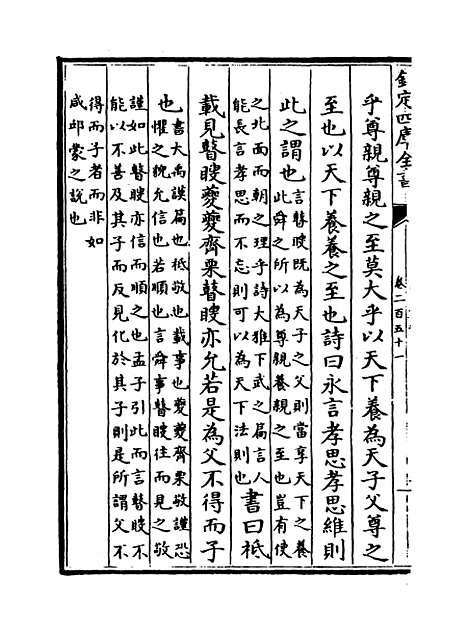 欽定四庫全書
卷二百五十一
乎尊親尊親之至莫大乎以天下養為天子父尊之
至也以天下養養之至也詩曰永言孝思孝思維則
此之謂也言瞽瞍既為天子之父則當享天下之養
此舜之所以為尊親養親之至也豈有使
之北面而朝之理乎詩大雅下武之篇言人
能長言孝思而不忘則可以為天下法則也書曰祗
載見瞽瞍夔夔齊栗瞽瞍亦允若是為父不得而子
也書大禹謨篇也祗敬也載事也夔夔齊栗敬謹恐
也懼之貌允信也若順也言舜事瞽瞍往而見之敬
謹如此瞽瞍亦信而順之也孟子引此而言瞽瞍不
能以不善及其子而反見化於其子則是所謂父不
得而子者而非如
咸邱蒙之說也